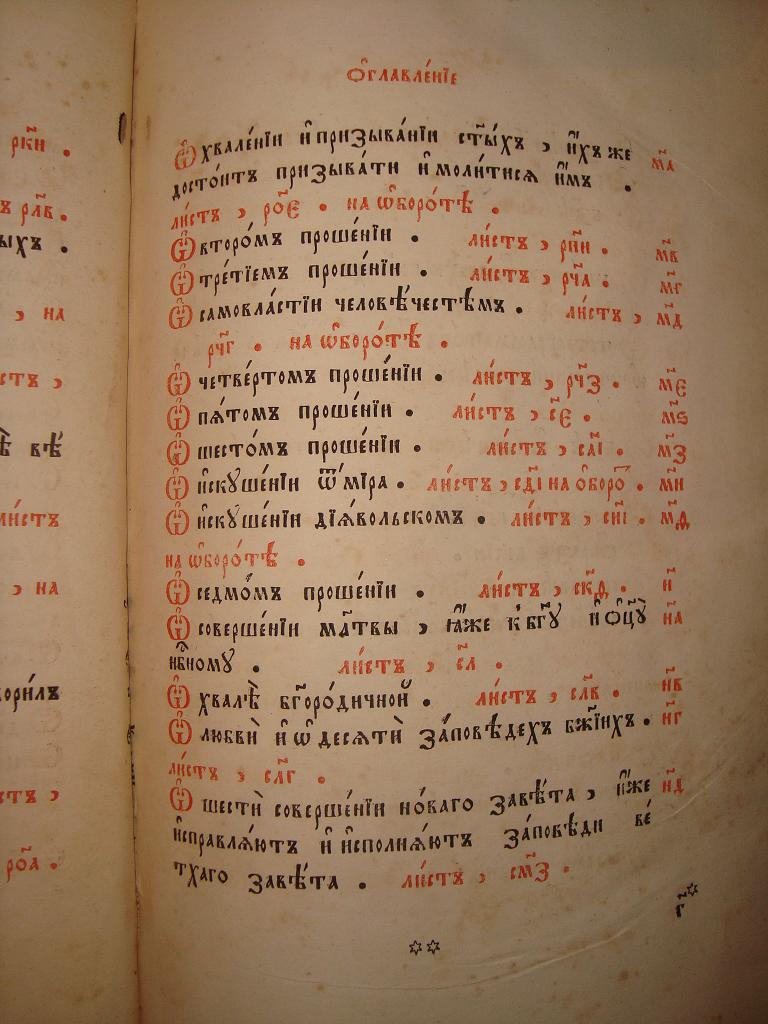 ркн҃ .
ъ рлв҃ .
ыхъ .
, на
стъ ,
ѣ вѣ́
ли́стъ
, на
ори́лъ
стъ ,
роа҃ .
Ѻ҆главле́нїе
Ѡ҆ хвале́нїи и҆ призыва́нїи ст҃ы́хъ , и҆́хъ же м҃а
досто́итъ призыва́ти и҆ моли́тисѧ и҆̀мъ .
ли́стъ , ро҃є . на ѡ҆боро́тѣ .
Ѡ҆ второ́мъ проше́нїи . ли́стъ , рп҃и . м҃в
Ѡ҆ тре́тїемъ проше́нїи . ли́стъ , рч҃а . м҃г
Ѡ҆ самовла́стїи человѣ́честѣмъ . ли́стъ , м҃д
рч҃г . на ѡ҆боро́тѣ .
Ѡ҆ четве́ртомъ проше́нїи . ли́стъ , рч҃з . м҃є
Ѡ҆ пѧ́томъ проше́нїи . ли́стъ , с҃є . м҃ѕ
Ѡ҆ шесто́мъ проше́нїи . ли́стъ , са҃і . м҃з
Ѡ҆ и҆скꙋше́нїи ѿ мі́ра . ли́стъ , сд҃і на ѻ҆боро́ . м҃и
Ѡ҆ и҆скꙋше́нїи дїѧ́вольскомъ . ли́стъ , си҃і . м҃ѳ
на ѡ҆боро́тѣ .
Ѡ҆ седмо́мъ проше́нїи . ли́стъ , ск҃д . н҃
Ѡ҆ соверше́нїи мл҃твы , ꙗ҆́же к̾ бг҃ꙋ и҆ ѻ҆ц҃ꙋ̀ н҃а
нб҃номꙋ . ли́стъ , с҃л .
Ѡ҆ хвалѣ̀ бг҃оро́дичной . ли́стъ , сл҃в . н҃в
Ѡ҆ любвѝ и҆ ѡ҆ десѧтѝ за́повѣдехъ бж҃їихъ . н҃г
ли́стъ , сл҃г .
Ѡ҆ шестѝ соверше́нїи но́ваго завѣ́та , и҆́же н҃д
и҆справлѧ́ютъ и҆ и҆сполнѧ́ютъ за́повѣди ве́
тхаго завѣ́та . ли́стъ , см҃з .
г҃